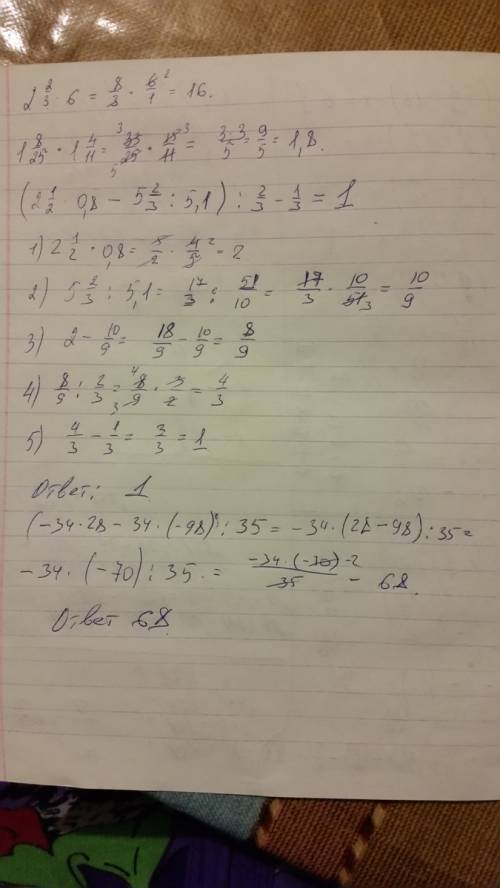 2 2/3 · 6 = 8/3 · 6/1 2 = 16.
1 8/25 · 1 4/11 = 3 33/25 5 · 15/11 3 = 3·3/5 = 9/5 = 1,8.
(2 1/2 · 0,8 − 5 2/3 : 5,1) : 2/3 − 1/3 = 1
1) 2 1/2 · 0,8 = 5/2 · 4/5 2 = 2
2) 5 2/3 : 5,1 = 17/3 : 51/10 = 17/3 · 10/51 3 = 10/9
3) 2 − 10/9 = 18/9 − 10/9 = 8/9
4) 8/9 : 2/3 = 4 8/9 3 · 3/2 = 4/3
5) 4/3 − 1/3 = 3/3 = 1
Ответ: 1
(−34·28 − 34·(−98)) : 35 = −34·(28 − 98) : 35 =
−34·(−70) : 35 = −34·(−70) 2/35 − 68.
Ответ 68.